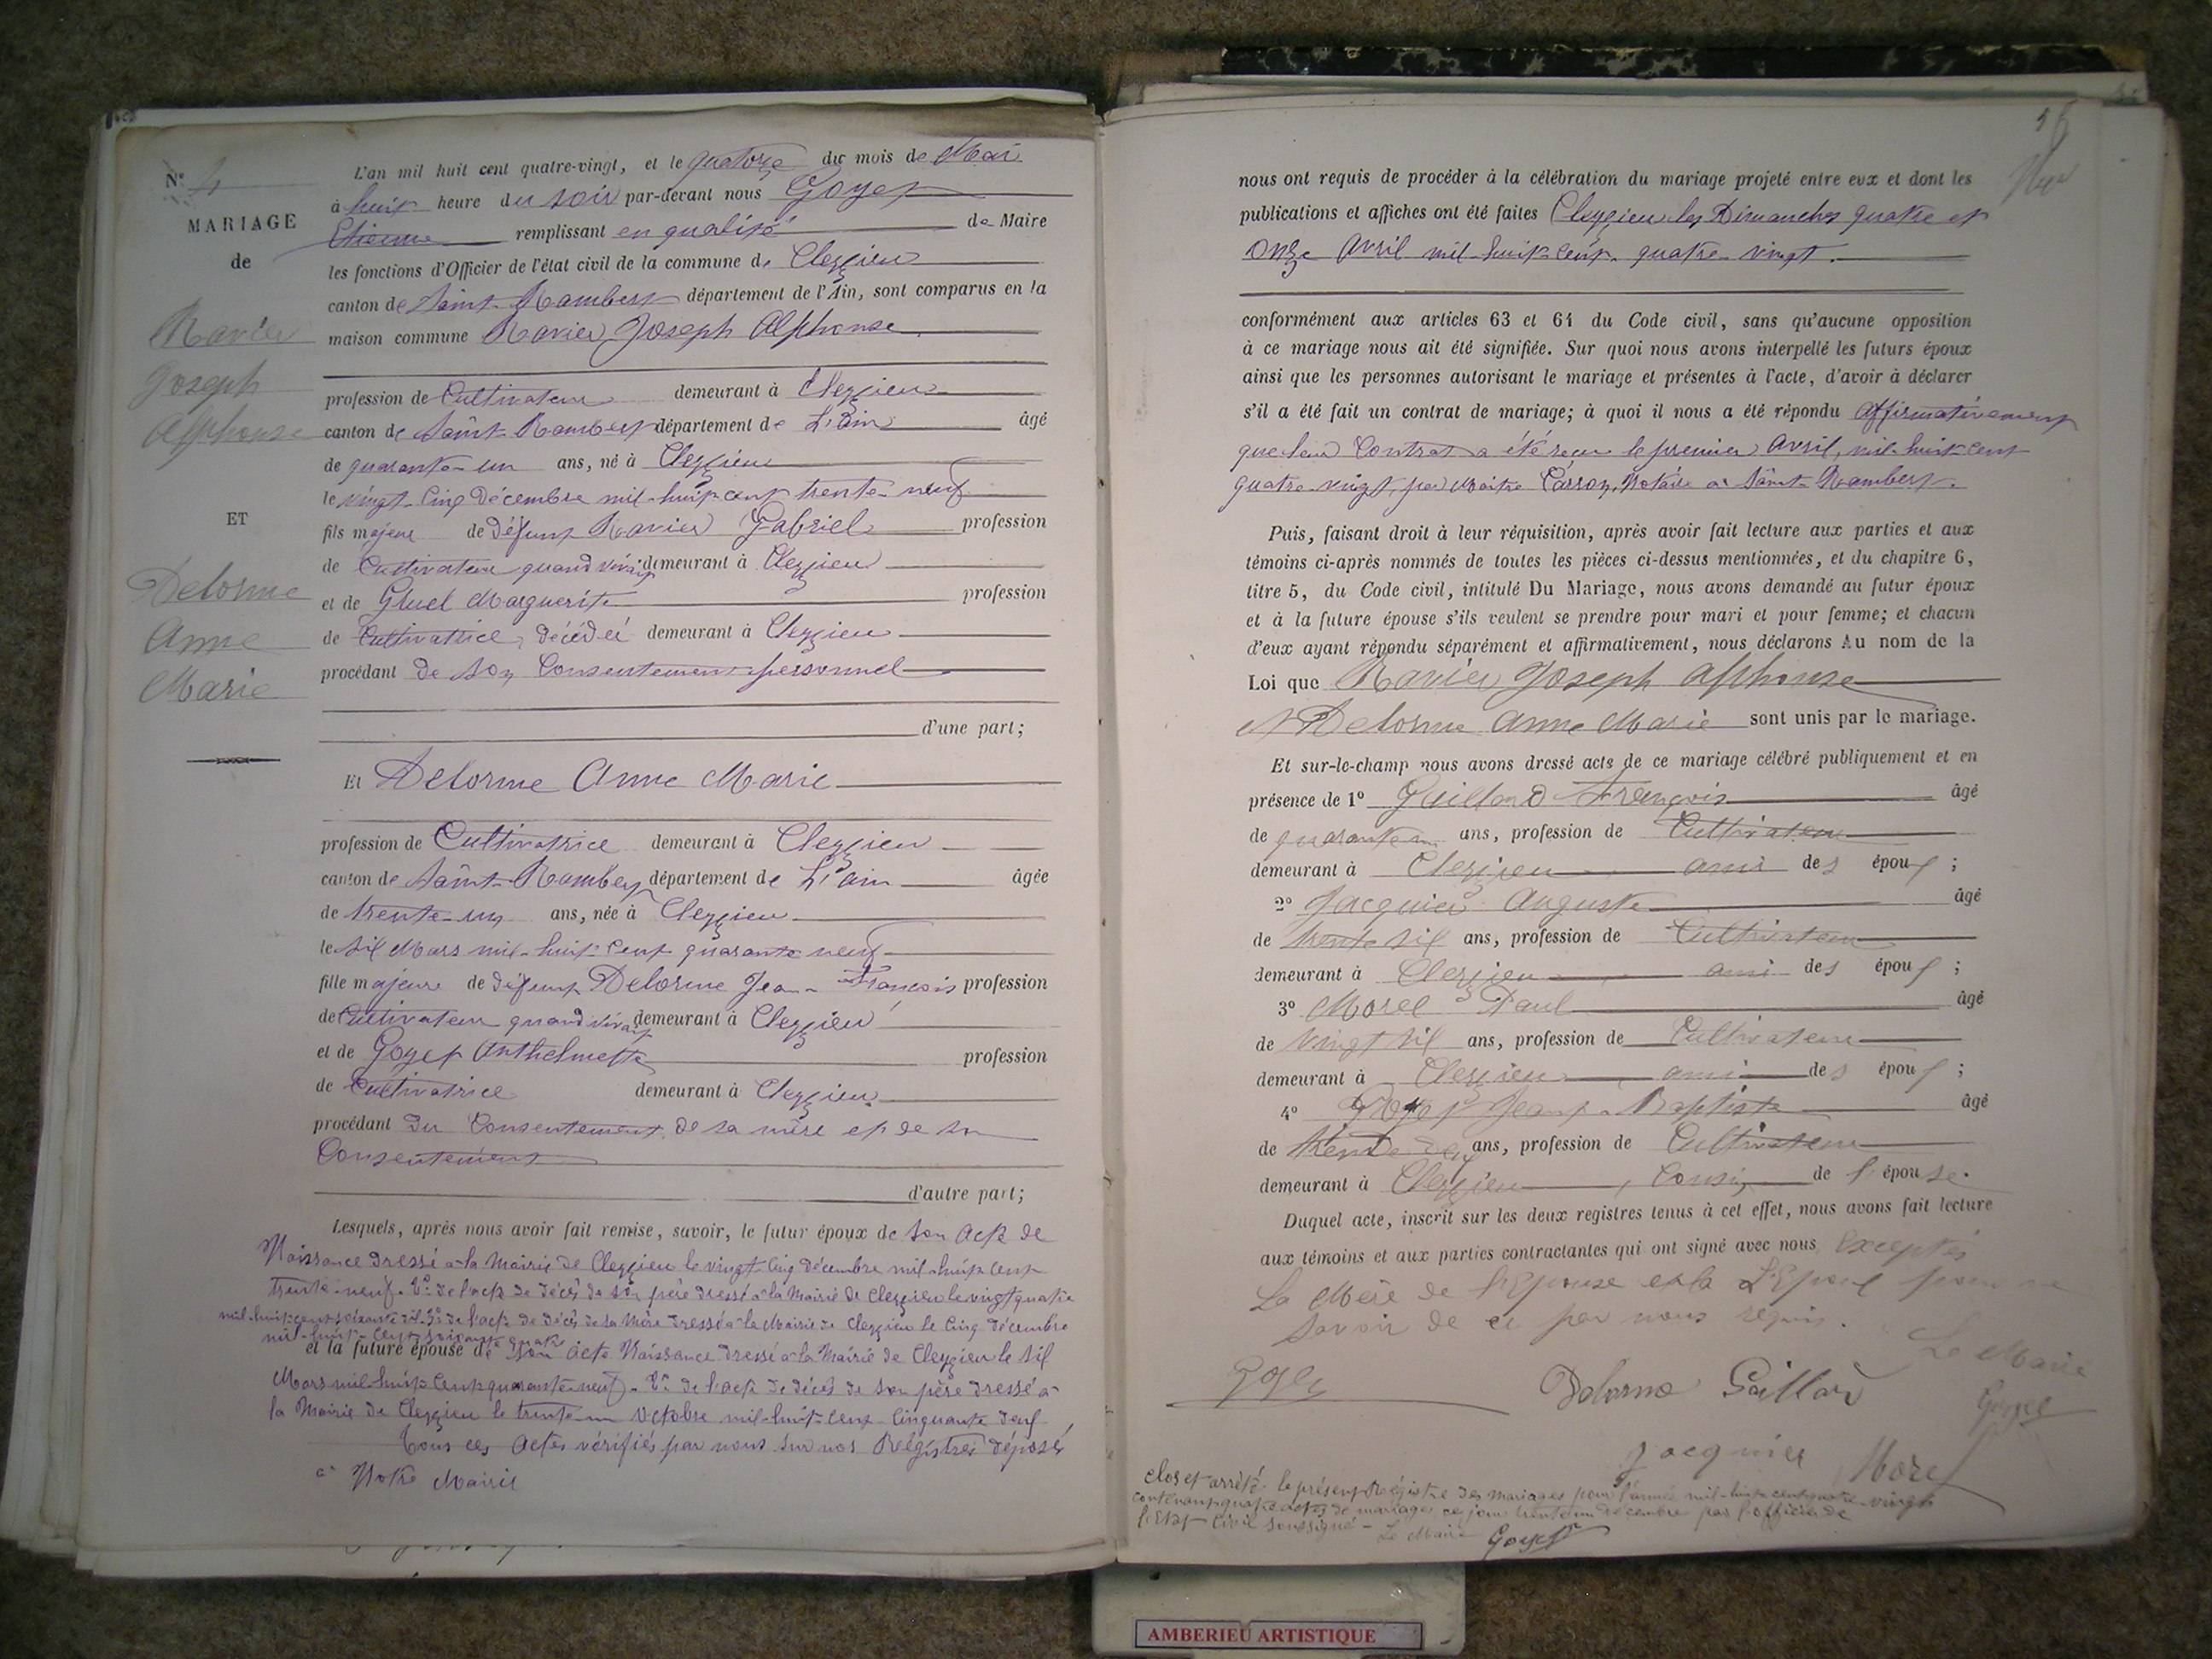 N° 4
MARIAGE
de
Ravier
Joseph
Alphonse
ET
Delorme
Anne
Marie
L'an mil huit cent quatre-vingt, et le quatorze du mois de Mai
à huit heure du soir par-devant nous Goyet
Etienne remplissant en qualité de Maire
les fonctions d'Officier de l'état civil de la commune de Cleyzieu
canton de Saint-Rambert département de l'Ain, sont comparus en la
maison commune Ravier Joseph Alphonse
profession de Cultivateur demeurant à Cleyzieu
canton de Saint-Rambert département de L'Ain âgé
de quarante-un ans, né à Cleyzieu
le vingt-cinq Décembre mil-huit cent trente-neuf
fils majeur de défunt Ravier Gabriel profession
de Cultivateur quand vivait demeurant à Cleyzieu
et de Gluel Marguerite profession
de Cultivatrice, décédée demeurant à Cleyzieu
procédant de son Consentement personnel
d'une part;
Et Delorme Anne Marie
profession de Cultivatrice demeurant à Cleyzieu
canton de Saint-Rambert département de L'ain âgée
de trente-un ans, née à Cleyzieu
le six Mars mil-huit-cent quarante neuf
fille majeure de défunt Delorme Jean-François profession
de Cultivateur quand vivait demeurant à Cleyzieu
et de Goyet Anthelmette profession
de Cultivatrice demeurant à Cleyzieu
procédant du Consentement de sa mère et de son
Consentement
d'autre part;
Lesquels, après nous avoir fait remise, savoir, le futur époux de son acte de
Naissance dressé à la Mairie de Cleyzieu le vingt-cinq décembre mil-huit cent
trente-neuf. 2° de l'acte de décès de son père dressé à la Mairie de Cleyzieu le vingt quatre
mil-huit-cent soixante dix. 3° de l'acte de décès de sa Mère dressé à la Mairie de Cleyzieu le cinq décembre
mil-huit-cent soixante quatre
et la future épouse de son acte Naissance dressé à la Mairie de Cleyzieu le six
Mars mil-huit cent quarante-neuf. 2° de l'acte de décès de son père dressé à
la Mairie de Cleyzieu le trente-un Octobre mil-huit-cent cinquante deux
Tous ces actes vérifiés par nous sur nos Régistres déposés
à Notre Mairie
nous ont requis de procéder à la célébration du mariage projeté entre eux et dont les
publications et affiches ont été faites Cleyzieu les Dimanches quatre et
onze Avril mil-huit-cent-quatre-vingt.
conformément aux articles 63 et 64 du Code civil, sans qu'aucune opposition
à ce mariage nous ait été signifiée. Sur quoi nous avons interpellé les futurs époux
ainsi que les personnes autorisant le mariage et présentes à l'acte, d'avoir à déclarer
s'il a été fait un contrat de mariage; à quoi il nous a été répondu affirmativement
que leur Contrat a été reçu le premier avril, mil-huit-cent
quatre-vingt, par Maître Carron, Notaire à Saint-Rambert.
Puis, faisant droit à leur réquisition, après avoir fait lecture aux parties et aux
témoins ci-après nommés de toutes les pièces ci-dessus mentionnées, et du chapitre 6,
titre 5, du Code civil, intitulé Du Mariage, nous avons demandé au futur époux
et à la future épouse s'ils veulent se prendre pour mari et pour femme; et chacun
d'eux ayant répondu séparément et affirmativement, nous déclarons Au nom de la
Loi que Ravier Joseph Alphonse
et Delorme Anne Marie sont unis par le mariage.
Et sur-le-champ nous avons dressé acte de ce mariage célébré publiquement et en
présence de 1° Gaillard François âgé
de ans, profession de Cultivateur
demeurant à Cleyzieu ami des époux;
2° Jacquier Auguste âgé
de trente six ans, profession de Cultivateur
demeurant à Cleyzieu ami des époux;
3° Morel Paul âgé
de vingt six ans, profession de Cultivateur
demeurant à Cleyzieu, ami des époux;
4° Goyet Jean-Baptiste âgé
de ans, profession de Cultivateur
demeurant à Cleyzieu, cousin de l'épouse.
Duquel acte, inscrit sur les deux registres tenus à cet effet, nous avons fait lecture
aux témoins et aux parties contractantes qui ont signé avec nous Exceptés
La Mère de l'Epouse et L'Epoux pour ne
savoir de ce par nous requis.
Le Maire
Goyet Delorme Gaillard Goyet
Jacquier Morel
Clos et arrêté le présent Régistre des mariages pour l'année mil-huit-cent quatre-vingt
contenant quatre actes de mariages ce jour trente un décembre par l'officier de
l'Etat-Civil soussigné - Le Maire Goyet
AMBERIEU ARTISTIQUE